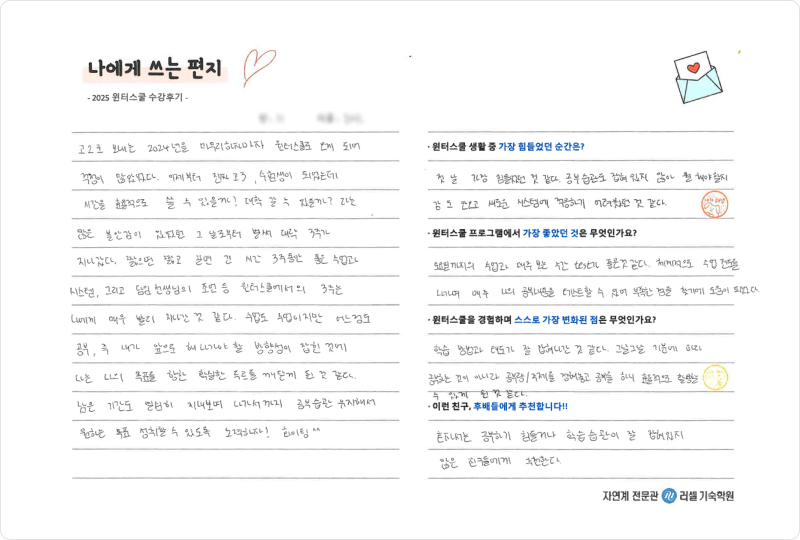 나에게 쓰는 편지
- 2025 윈터스쿨 수강후기 -
고2로 보내는 2024년을 마무리하자마자 윈터스쿨로 오게 되어
걱정이 많았었다. 이제부터 진짜 고3, 수험생이 되었는데
시간을 효율적으로 쓸 수 있을까? 대학 갈 수 있을까? 라는
많은 불안감이 있었던 그 날로부터 벌써 대략 3주가
지나갔다. 짧으면 짧고 길면 긴 시간 3주동안 좋은 수업과
시스템, 그리고 담임 선생님의 조언 등 윈터스쿨에서의 3주는
나에게 매우 빨리 지나간 것 같다. 수업도 수업이지만 어느정도
공부, 즉 내가 앞으로 해 나가야 할 방향성이 잡힌 것이
나는 나의 목표를 향한 확실한 루트를 깨닫게 된 것 같다.
남은 기간도 열심히 지내보며 나가서까지 공부습관 유지해서
원하는 목표 성취할 수 있도록 노력하자! 화이팅^^
· 윈터스쿨 생활 중 가장 힘들었던 순간은?
첫 날 가장 힘들었던 것 같다. 공부습관도 잡혀 있지 않아 뭘 해야할지
감도 안오고 새로운 시스템에 적응하기 어려웠던 것 같다.
· 윈터스쿨 프로그램에서 가장 좋았던 것은 무엇인가요?
수업과 매주 보는 수간 test가 좋은것 같다. 체계적으로 수업 진도를
나가며 매주 나의 공부내용을 테스트할 수 있어 부족한 점을 찾기에 도움이 되었다.
· 윈터스쿨을 경험하며 스스로 가장 변화된 점은 무엇인가요?
학습 방법과 태도가 잘 잡혀나간 것 같다. 그날그날 기분에 따라
공부하는 것이 아니라 공부량/주제를 정해놓고 공부를 하니 효율적으로 활용할
수 있게 된 것 같다.
· 이런 친구, 후배들에게 추천합니다!!
혼자서는 공부하기 힘들거나 학습 습관이 잘 잡혀있지
않은 친구들에게 추천한다.
자연계 전문관 러셀 기숙학원